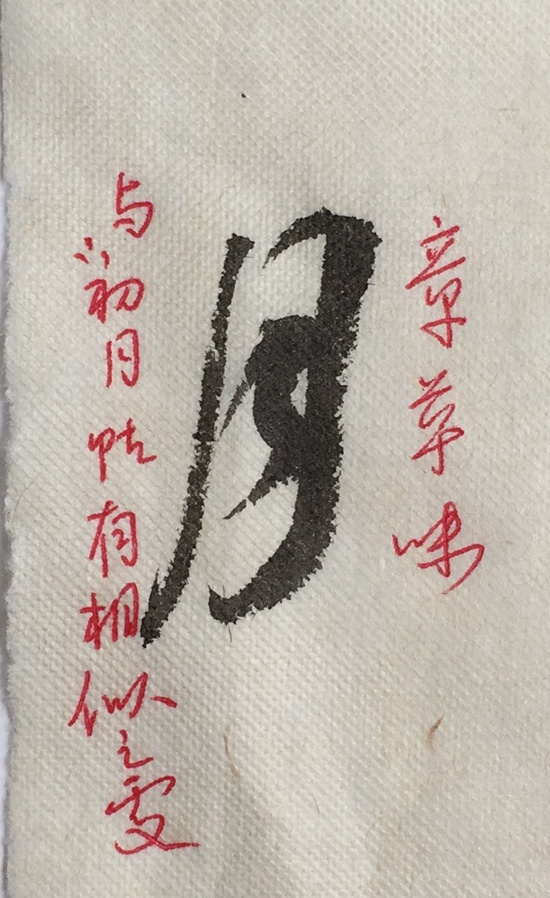 章草味
月
与“初月帖有相似之處